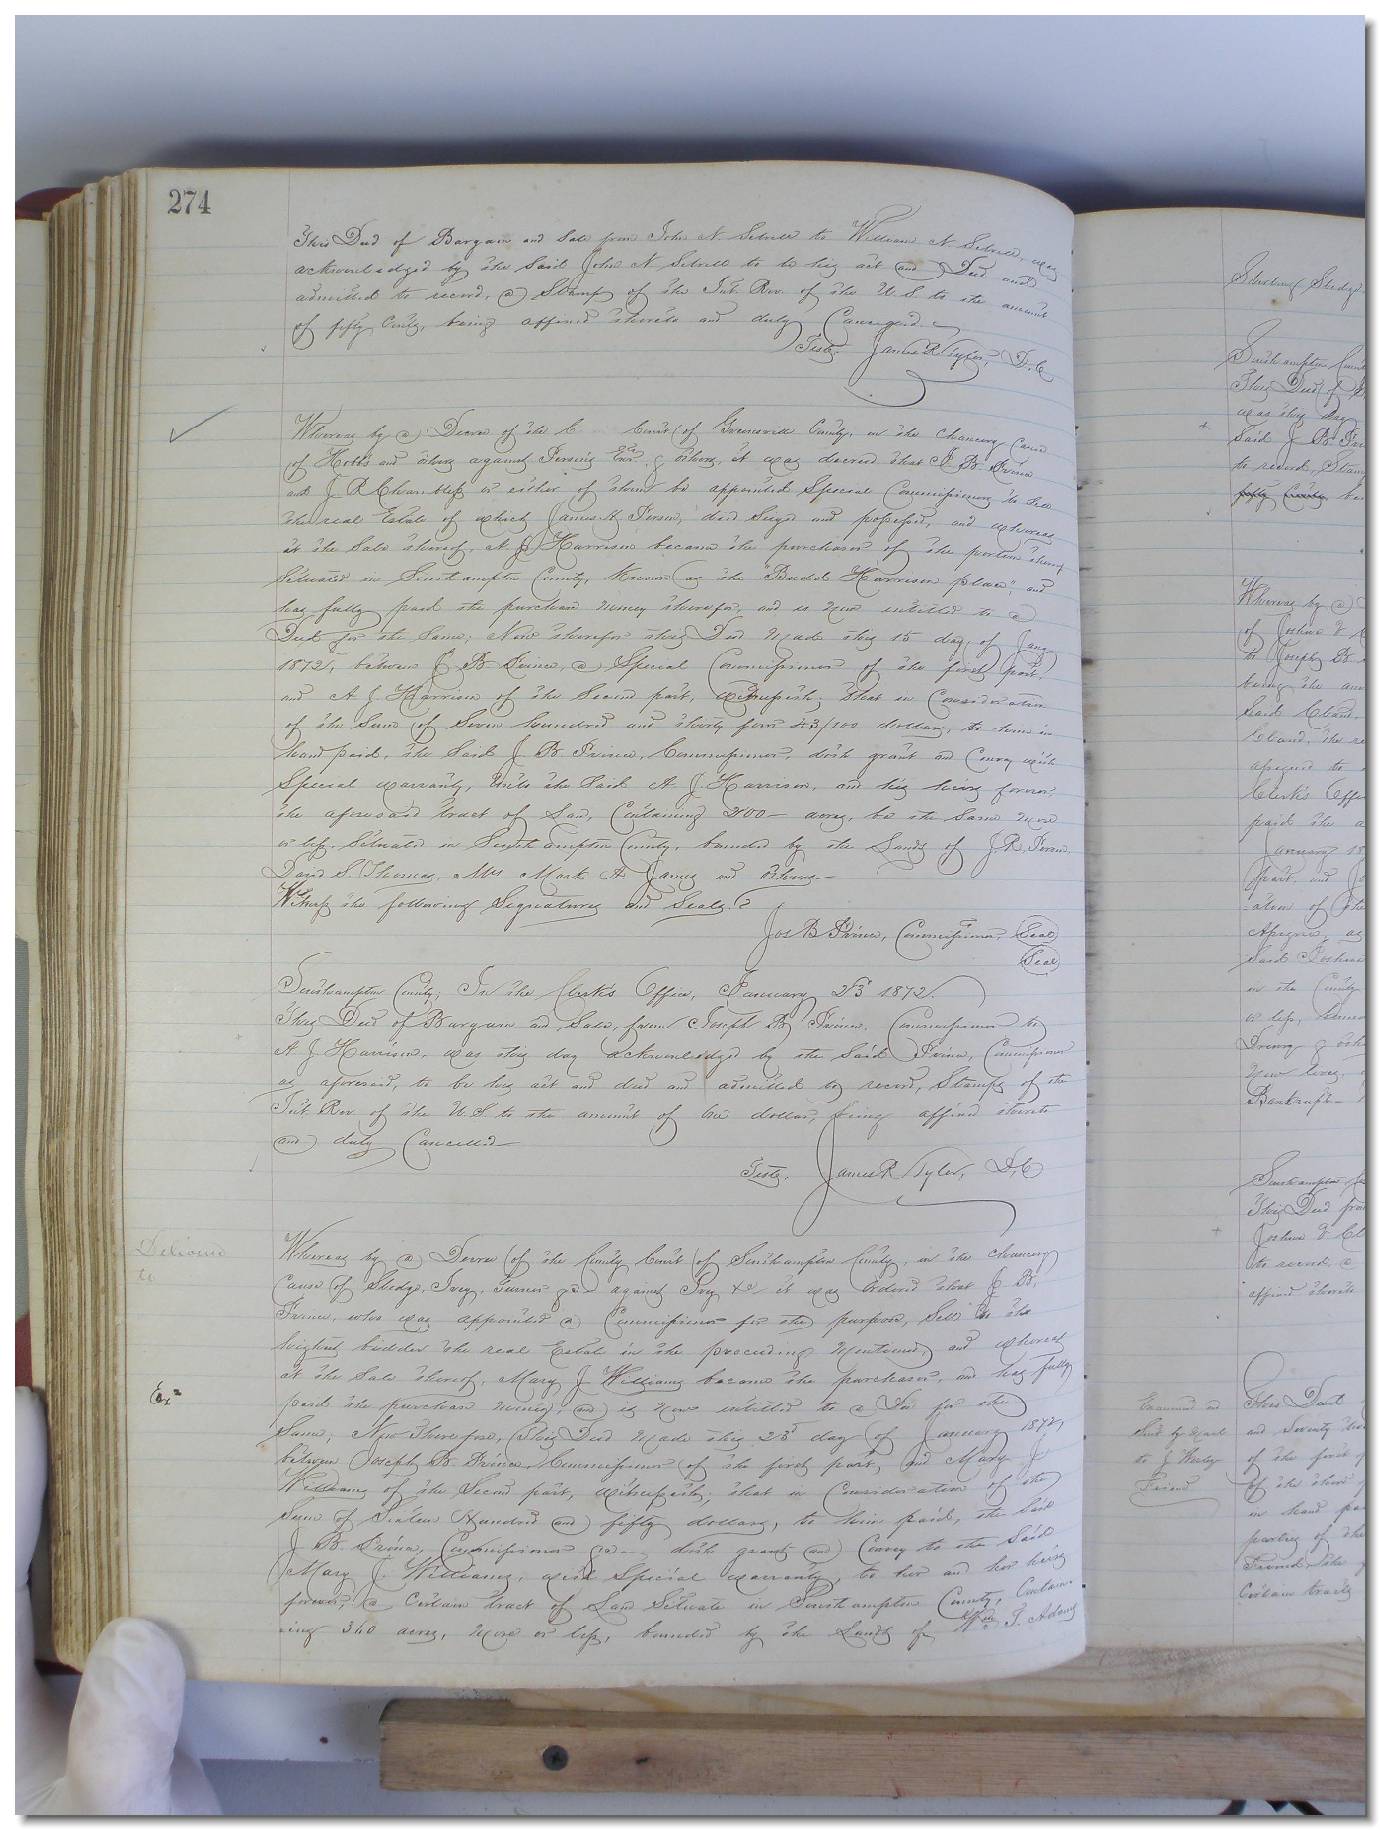 274
This Deed of Bargain and Sale from John N. Sebrell to William N. Sebrell, was
acknowledged by the Said John N Sebrell to be his act and Deed and
admitted to record, a Stamp of the Int Rev. of the U.S. to the amount
of fifty Cents, being affixed thereto and duly
Teste. James R Tyler, D.C
Whereas by a Decree of the C Court of Greensville County, in the Chancery Cause
of Hobbs and others against Persons & others, it was decreed that J. B. Prince
and J R Chambliss or either of them be appointed Special Commissioners to Sell
the real Estate of which James H Person, died Siezed and possessed, and whereas
at the Sale thereof, A J Harrison became the purchaser of the portion thereof
Situated in Southampton County, Known as the "Harrison place", and
has fully paid the purchase money therefor, and is now entitled to a
Deed for the Same; Now therefor this Deed made this 15 day of Jany
1872, between J B Prince, a Special Commissioner of the first part,
and A J. Harrison of the Second part, Witnesseth; that in Consideration
of the Sum of Seven hundred and thirty four 43/100 dollars, to him in
hand paid, the Said J B Prince, Commissioner, doth grant and Convey with
Special warranty, unto the Said A. J. Harrison, and his heirs forever,
the aforesaid tract of Lan, Containing 400 — acres, be the Same more
or less, Situated in Southampton County, bounded by the Lands of J.R. Person,
David S Thomas, Mrs A James and others —
Witness the following Signatures and Seals.
Jos B Prince, Commissioner, Seal
Seal
Southampton County; In the Clerk's Office, January 23d 1872.
This Deed of Bargain and Sale, from Joseph B Prince, Commissioner to
A J Harrison, was this day acknowledged by the Said Prince, Commissioner
as aforesaid, to be his act and deed and admitted to record, Stamps of the
Int Rev of the U.S. to the amount of one dollar, being affixed thereto
and duly Cancelled —
Teste. James R Tyler, D,C
Delivered
to
Whereas by a Decree of the County Court of Southampton County, in the Chancery
Cause of Sledge, Ivey, Turner against Ivey &c it was Ordered that J. B.
Prince, who was appointed a Commissioner for the purpose, Sell to the
highest bidder the real Estate in the proceeding mentioned, and whereas
at the Sale thereof, Mary J Williams became the purchaser, and has fully
Ex
paid the purchase money, and is now entitled to a Deed for the
Same; Now Therefore, this Deed made this 23d day of January 1872,
between Joseph B Prince Commissioner of the first part, and Mary J
Williams of the Second part, witnesseth, that in Consideration of the
Sum of Sixteen Hundred and fifty dollars, to him paid, the Said
J B. Prince, Commissioner &c — doth grant and Convey to the Said
Mary J. Williams, with Special warranty, to her and her heirs
forever, a Certain tract of Land Situate in Southampton County, Contain-
-ing 340 acres, more or less, bounded by the Lands of Wm T. Adams
Southampton
This Deed of
was this day
Said J B Prin
to record, Stam
fifty Cents be
Whereas by a
of Joshua
to Joseph B
being the am
Said
Cland, the re
assigned to
Clerk's Offi
paid the a
January 18
part, and Jo
-ation of the
Assignee, as
Said Joshua
in the County
or less,
Drewry & oth
now lives,
Bankrupt —
Southampton
This Deed from
Joshua
to record, a
affixed thereto
Examined and
Sent by Mail
to J Wesley
Friend
This Deed
and Seventy two
of the first p
of the third p
in hand pa
parties of the
Friend, the
Certain tracts